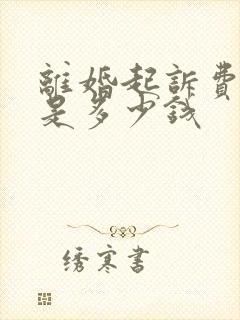 離婚起訴費
是多少錢
绣寒書